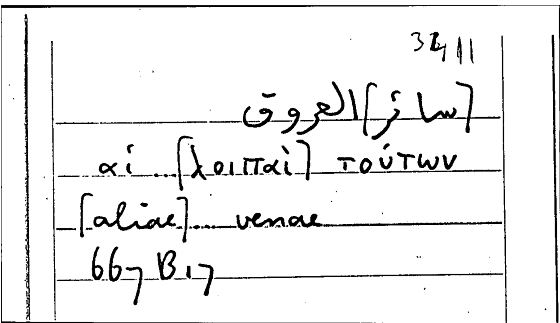 [سائر] العروق
αἱ ... [λοιπαὶ] τούτων
[aliae] ... venae
667 B 17